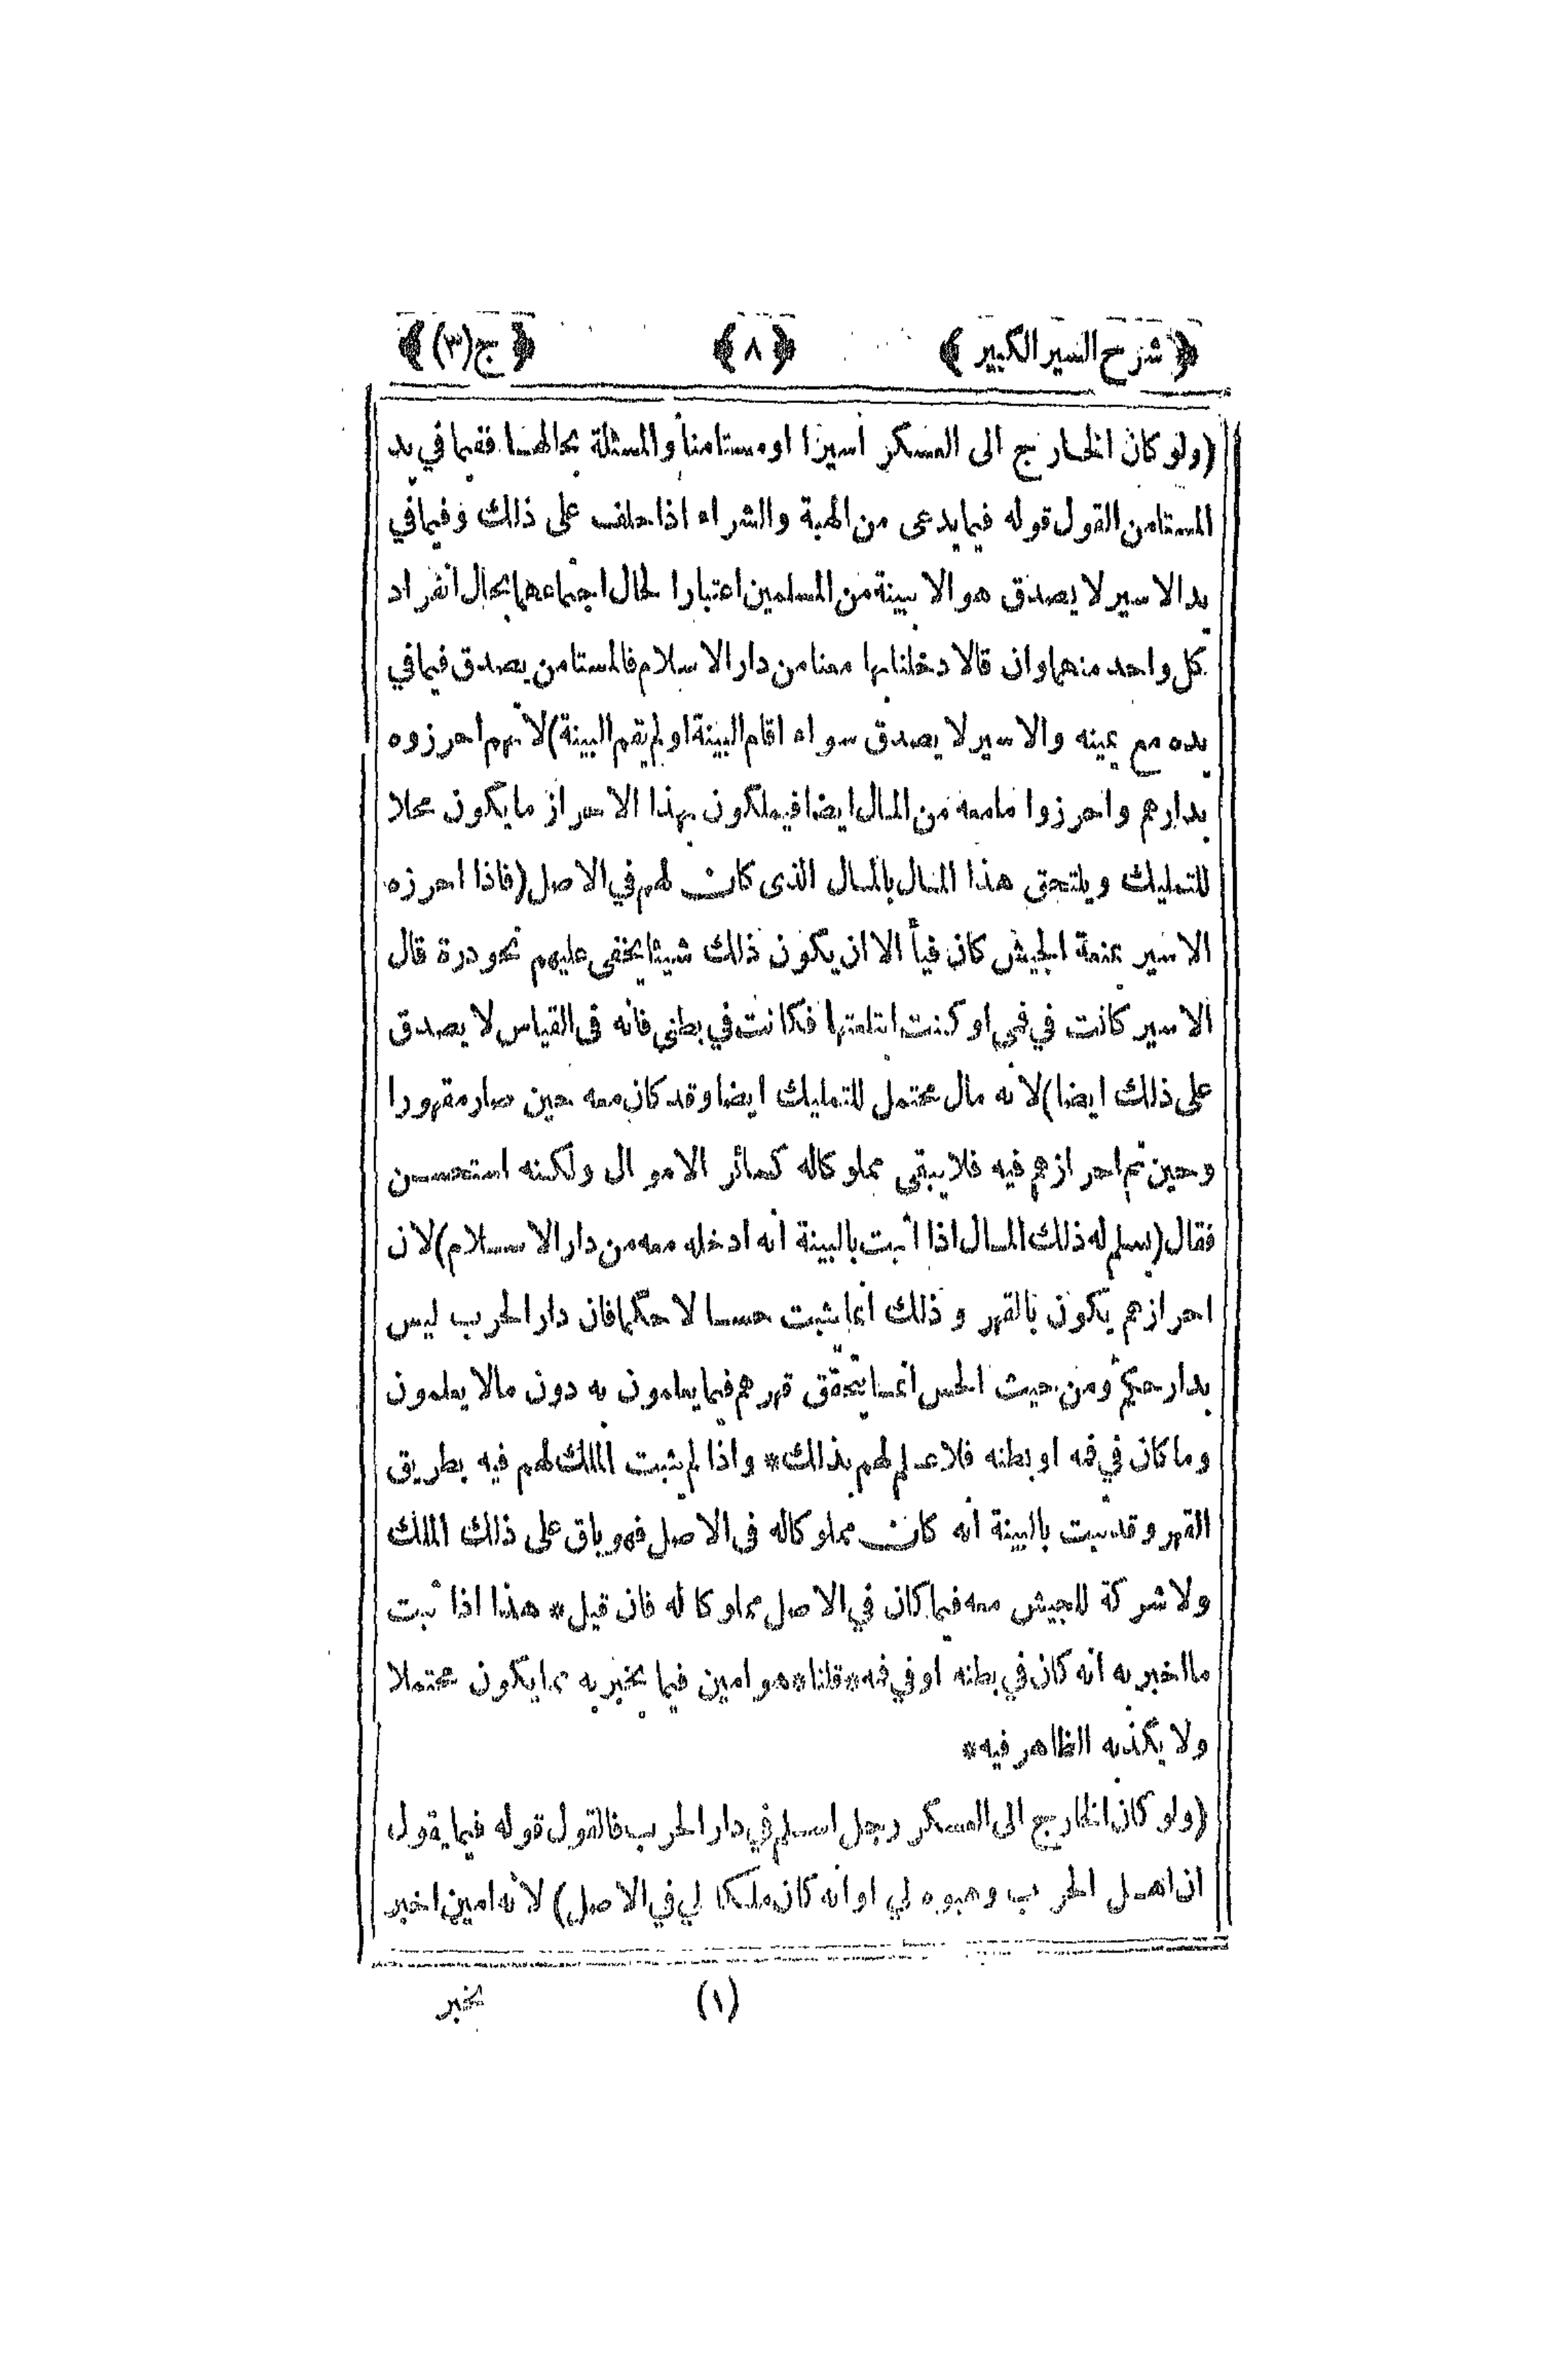 ﴿ شرح السير الكبير ﴾ ﴿ ٨ ﴾ ﴿ ج(٣) ﴾
(ولو كان الخارج الى العسكر اسيرا او مستامنا والمسئلة بحالهما ففيما في يد
المستامن القول قوله فيما يدعى من الهبة والشراء اذا حلف على ذلك وفيما في
يد الاسير لا يصدق هو الا ببينة من المسلمين اعتبارا لحال اجتماعهما بحال انفراد
كل واحد منهما وان قالا دخلنا بها معنا من دار الاسلام فالمستامن يصدق فيما في
يده مع يمينه والاسير لا يصدق سواء اقام البينة او لم يقم البينة) لانهم احرزوه
بدارهم واحرزوا مامعه من المال ايضا فيملكون بهذا الاحراز ما يكون محلا
للتمليك ويلتحق هذا المال بالمال الذى كان لهم في الاصل (فاذا احرزه
الاسير بمنعة الجيش كان فيأ الا ان يكون ذلك شيئا يخفى عليهم نحو درة قال
الاسير كانت في فمي او كنت ابتلعتها فكانت في بطني فانه فى القياس لا يصدق
على ذلك ايضا) لانه مال محتمل للتمليك ايضا وقد كان معه حين صار مقهورا
وحين تم احرازهم فيه فلا يبقى مملوكا له كسائر الاموال ولكنه استحسن
فقال (يسلم له ذلك المال اذا اثبت بالبينة انه ادخله معه من دار الاسلام) لان
احرازهم يكون بالقهر وذلك انما يثبت حسا لا حكما فان دار الحرب ليس
بدار حكم ومن حيث الحس انما يتحقق قهرهم فيما يعلمون به دون مالا يعلمون
وما كان في فمه او بطنه فلا علم لهم بذلك* واذا لم يثبت الملك لهم فيه بطريق
القهر وقد ثبت بالبينة انه كان مملوكا له فى الاصل فهو باق على ذلك الملك
ولا شركة للجيش معه فيما كان في الاصل مملوكا له فان قيل* هذا اذا ثبت
ما اخبر به انه كان في بطنه او في فمه* قلنا* هو امين فيما يخبر به مما يكون محتملا
ولا يكذبه الظاهر فيه*
(ولو كان الخارج الى العسكر رجل اسلم في دار الحرب فالقول قوله فيما يقول
ان اهل الحرب وهبوه لي او انه كان ملكا لي في الاصل) لانه امين اخبر
(١) بخبر